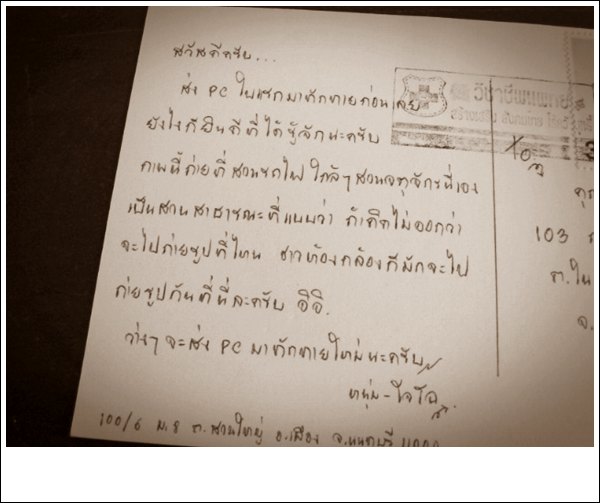 สวัสดีครับ...
ส่ง PC ใบแรกมาทักทายก่อนเลย
ยังไงก็ยินดีที่ได้รู้จักนะครับ
ภาพนี้ถ่ายที่สวนรถไฟ ใกล้ๆสวนจตุจักรนี่เอง
เป็นสวนสาธารณะที่แบบว่า ถ้าคิดไม่ออกว่า
จะไปถ่ายรูปที่ไหน ชาวท้องกล้องก็มักจะไป
ถ่ายรูปกันที่นี่ละครับ อิอิ.
ว่างๆจะส่ง PC มาทักทายใหม่นะครับ
หนุ่ม-ใจโอ
100/6 ม.8 ต.สวนใหญ่ อ.เมือง จ.นนทบุรี 11000
วิชาชีพแพทย์
To
103
ต.ใน
จ.